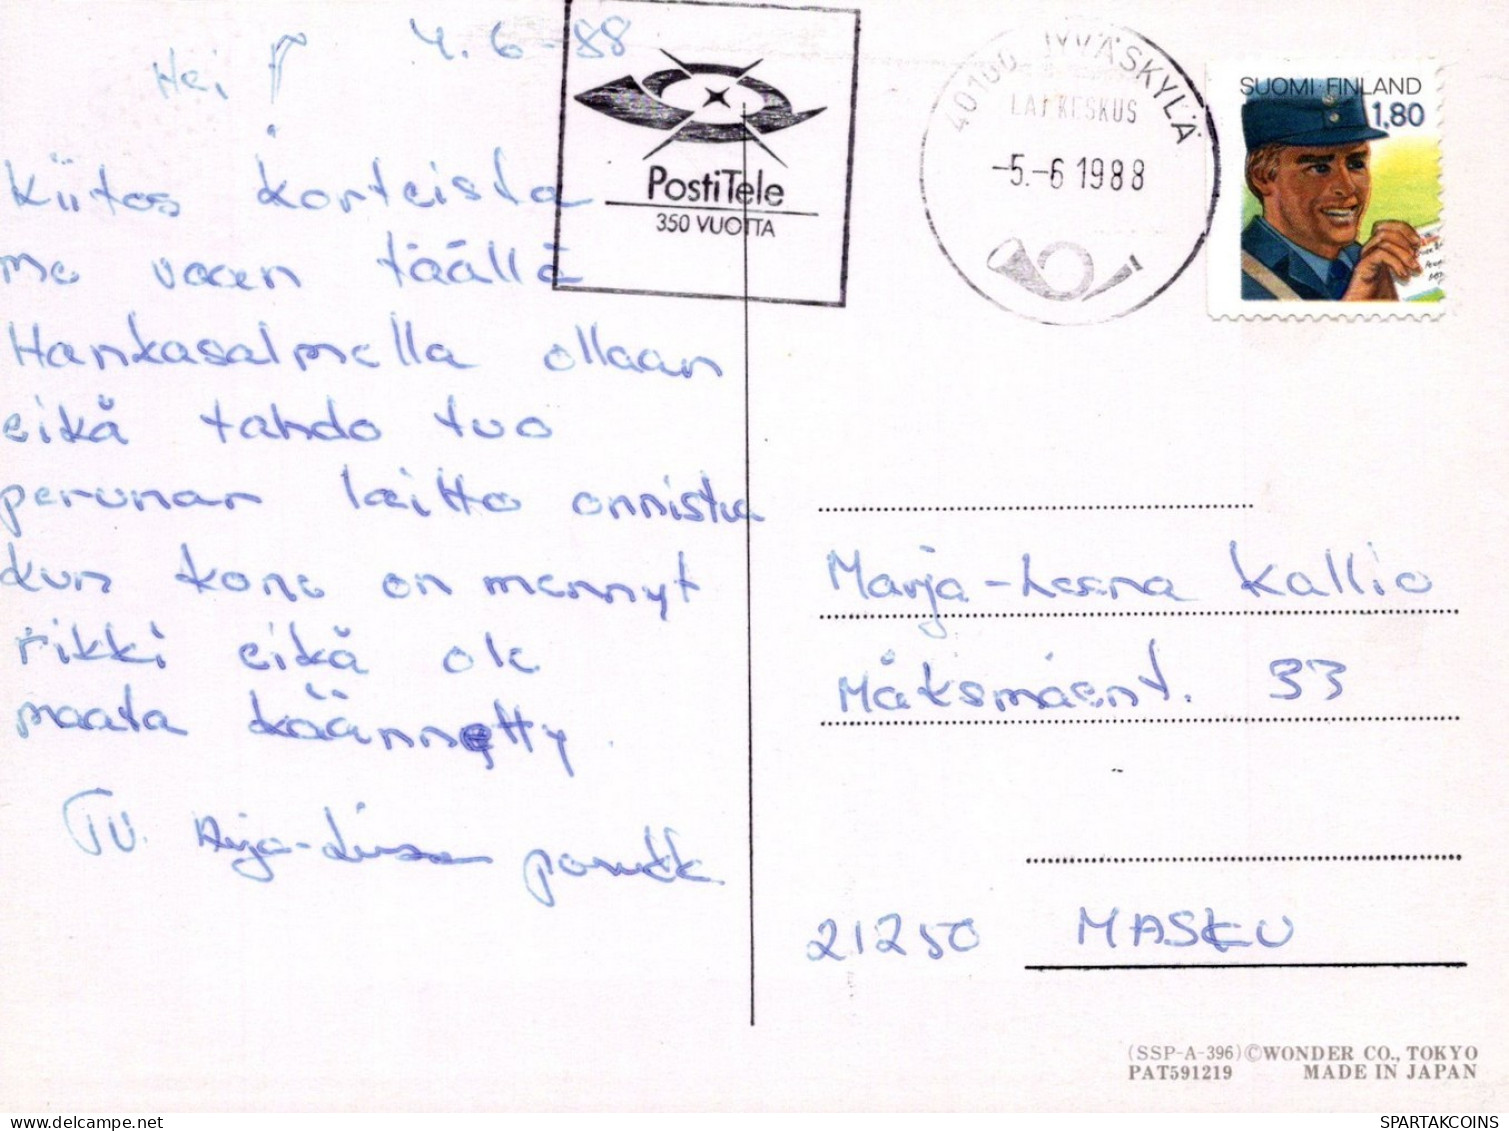 4.6-88
Hei!
Kiitos korteista
me vaan täällä
Hankasalmella ollaan
eikä tahdo tuo
perunan laitto onnistua
kun kone on mennyt
rikki eikä ole
maata käännetty.
TV. Arja-Liisa
PostiTele
350 VUOTTA
40100 JYVÄSKYLÄ
LAJ KESKUS
-5.-6 1988
SUOMI·FINLAND
1,80
Marja-Leena Kallio
Mäksmäent. 33
21250 MASKU
(SSP-A-396)©WONDER CO., TOKYO
PAT591219 MADE IN JAPAN
SPARTAKCOINS
delcampe.net